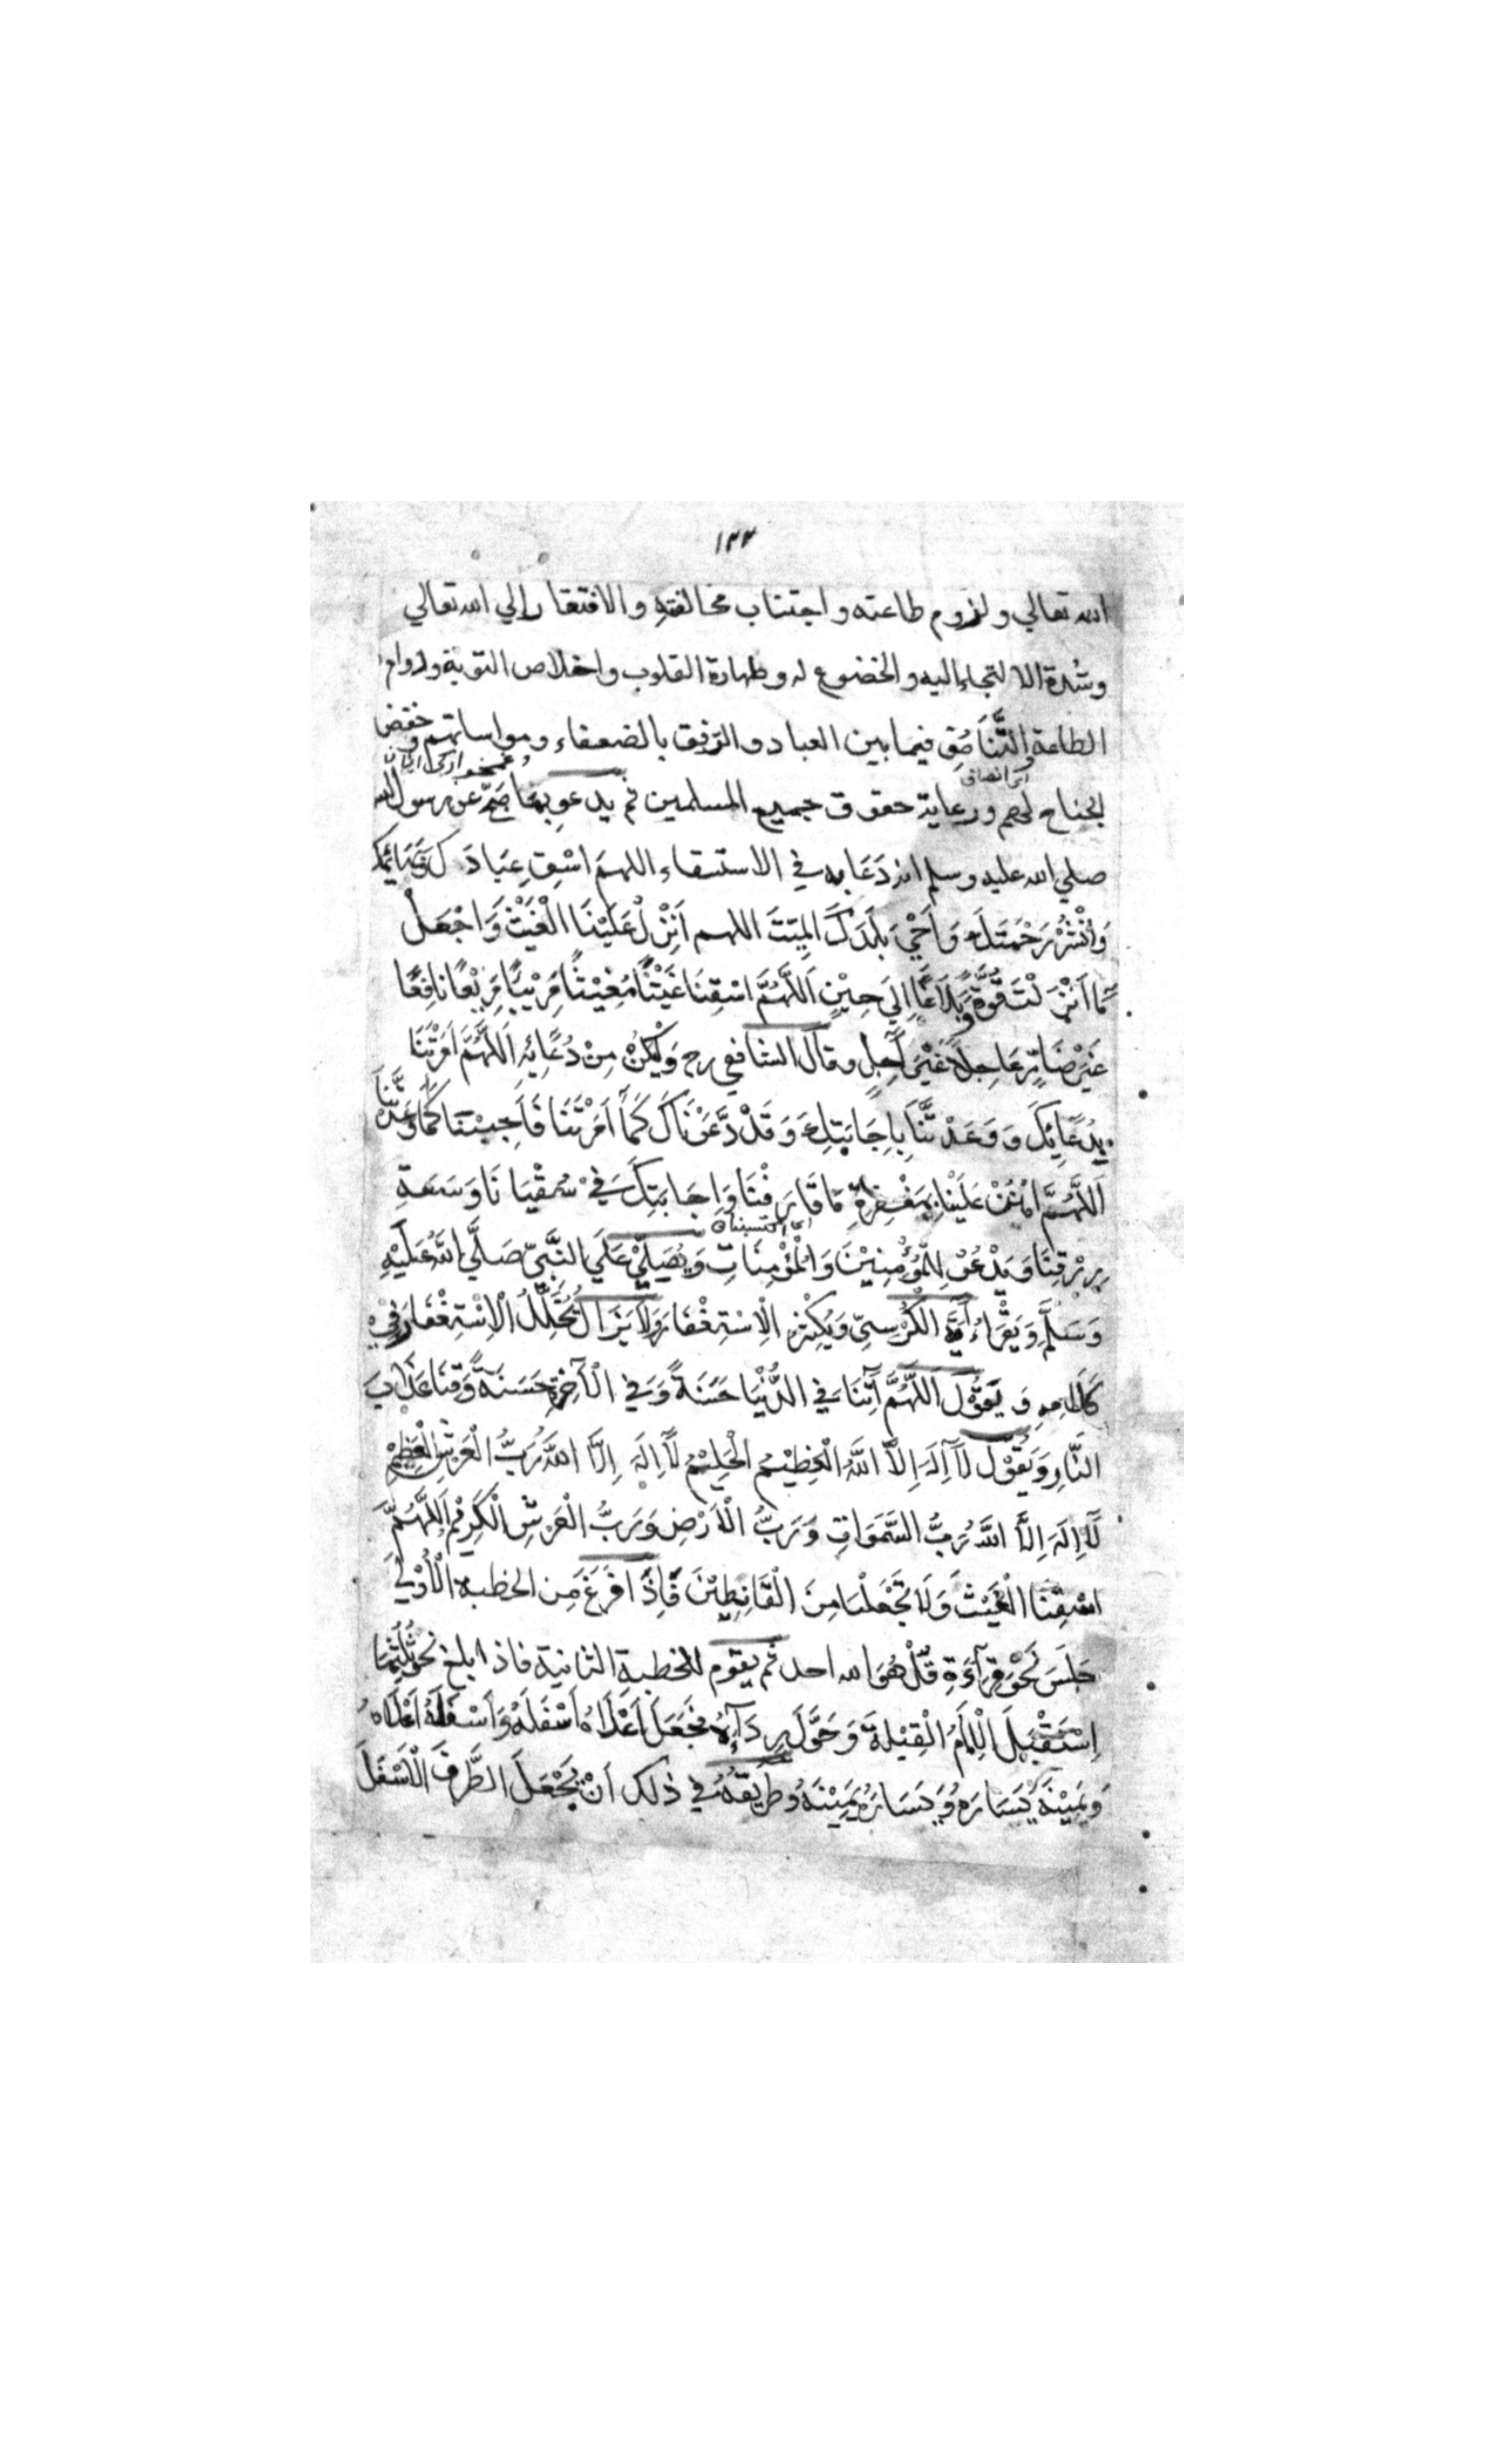 ١٣٣
الله تعالي ولزوم طاعته واجتناب مخالفتهِ والافتقار إلي الله تعالي
وشدة الالتجاء اليه والخضوع له وطهارة القلوب واخلاص التوبة ودوام
الطاعة والتَّنَاصُفِ فيما بين العباد والرّفق بالضعفاء ومواساتهم وخفض
الجناح لهم ورعاية حقوق جميع المسلمين ثم يدعو بِمَا صَحَّ عن رسول الله
صلي الله عليه وسلم انه دَعَا به في الاستسقاء اللهمَ اسْقِ عِبَادَكَ وَبَهَائِمَكَ
وَانْشُرْ رَحْمَتَكَ وَاَحْيِ بَلَدَكَ المَيِّتَ اللهم اَنْزِلْ عَلَيْنَا الْغَيْثَ وَاجْعَلْ
مَّا اَنْزَلْتَ قُوَّةً وَّبَلَاغًا اِلَي حِيْنٍ اَللَّهُمَّ اسْقِنَا غَيْثًا مُغِيْثًا مَرِيْئًا مَرِيْعًا نَافِعًا
غَيْرَ ضَارٍّ عَاجِلًا غَيْرَ آجِلٍ وقال الشافعي رح وَلْيَكُنْ مِنْ دُعَائِهِ اَللَّهُمَّ اَمَرْتَنَا
بِدُعَائِكَ وَ وَعَدْتَّنَا بِاِجَابَتِكَ وَقَدْ دَعَوْنَاكَ كَمَا اَمَرْتَنَا فَاَجِبْنَا كَمَا وَعَدْتَّنَا
اَللَّهُمَّ امْنُنْ عَلَيْنَا بِمَغْفِرَةِ مَا قَارَفْنَا وَاِجَابَتِكَ فِيْ سُقْيَانَا وَسَعَةِ
اي اكتسبناه
رِزْقِنَا وَيَدْعُوْ لِلْمُؤْمِنِيْنَ وَالْمُؤْمِنَاتِ وَيُصَلِّيْ عَلَي النَّبِيِّ صَلَّي اللَّهُ عَلَيْهِ
وَسَلَّمَ وَيَقْرَاءُ اَيَةَ الْكُرْسِيِّ وَيُكْثِرُ الْاِسْتِغْفَارَ وَلَا يَزَالُ يُخَلِّلُ الْاِسْتِغْفَارَ فِيْ
كَلَامِهِ وَ يَقُوْلُ اَللَّهُمَّ آتِنَا فِي الدُّنْيَا حَسَنَةً وَفِي الْآخِرَةِ حَسَنَةً وَّقِنَا عَذَابَ
النَّارِ وَيَقُوْلُ لَآ اِلَهَ اِلَّا اللَّهُ الْعَظِيْمُ الْحَلِيْمُ لَآ اِلَهَ اِلَّا اللَّهُ رَبُّ الْعَرْشِ الْعَظِيْمِ
لَآ اِلَهَ اِلَّا اللَّهُ رَبُّ السَّمَوَاتِ وَرَبُّ الْاَرْضِ وَرَبُّ الْعَرْشِ الْكَرِيْمِ اَللَّهُمَّ
اسْقِنَا الْغَيْثَ وَلَا تَجْعَلْنَا مِنَ الْقَانِطِيْنَ فَاِذَا فَرَغَ مِنَ الخطبه الْاُوْلَي
جَلَسَ نَحْوَ قِرَآءَةِ قُلْ هُوَ الله احد ثم يقوم للخطبة الثانية فاذا ابلغ نحو ثُلُثِهَا
اِسْتَقْبَلَ الْاِمَامُ الْقِبْلَةَ وَحَوَّلَ رِدَآءَهُ فَجَعَلَ اَعْلَاهُ اَسْفَلَهُ وَاَسْفَلَهُ اَعْلَاهُ
وَيَمِيْنَهُ يَسَارَهُ وَيَسَارَهُ يَمِيْنَهُ وَطَرِيْقُهُ فِي ذلك اَنْ يَجْعَلَ الطَّرَفَ الْاَسْفَلَ